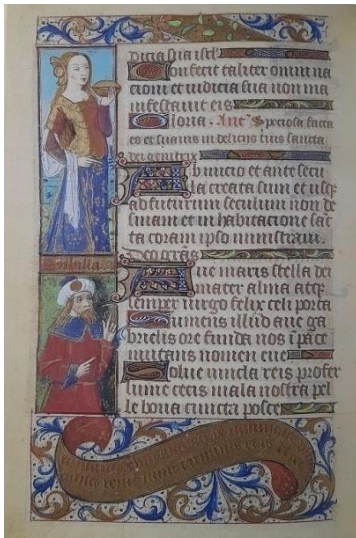 dicia sua isrl
Non fecit taliter omni na
cioni et iudicia sua non ma
infestavit eis
Gloria. Ant Speciosa facta
es et suavis in deliciis tuis sancta
dei genitrix
Ab inicio et ante secu
la creata sum et usq
ad futurum seculum non de
sinam et in habitacione sāc
ta coram ipso ministravi.
Deo grās
Ave maris stella dei
mater alma atq
semper virgo felix celi porta
Sumens illud ave ga
brielis ore funda nos ī pace
mutans nomen eve
Solve vincla reis profer
lumē cecis mala nostra pel
le bona cuncta posce
Sibilla